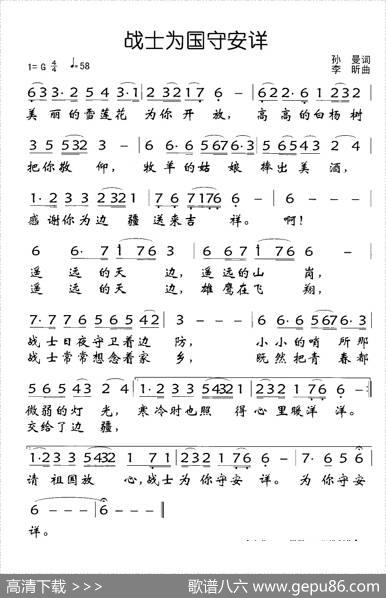 战士为国守安详
1= G 4/4 ♩=58
孙 曼词
李 昕曲
633·2 54 3·1 232176 - 622·61232
美丽的雪莲花 为你开放, 高高的白杨树
355323 - 66·6567 6·3 5·653 -
把你敬仰, 牧羊的姑娘捧出美酒,
1·2332321 76 7176 6 - - 6 - - -
感谢你为边疆送来吉祥。啊!
6 6· 7 1763 - 667·1 7636 -
遥远的天边,遥远的山岗,
遥远的天边,雄鹰在飞翔,
7·776565423 - - - 66·6567 6·3
战士日夜守卫着边防, 小小的哨所那
战士常常想念着家乡, 既然把青春都
5·65432 4 1·23354321 232 1766 -
微弱的灯光,寒冷时也照得心里暖洋洋。
交给了边疆,
1·23354321 71 2321766 - - 7 656
请祖国放心,战士为你守安详。为你守安
6 - - - 6 - - -
详。
高清下载 >>>
歌谱八六 www.gepu86.com